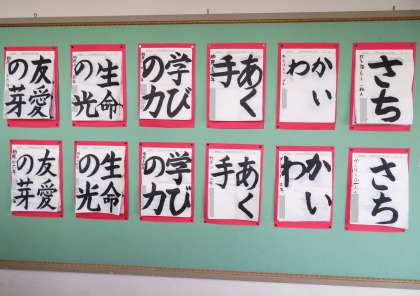 さち
かい
わ
あく
手
学び
の力
生命
の光
友愛
の芽
さち
かい
わ
あく
手
学び
の力
生命
の光
友愛
の芽